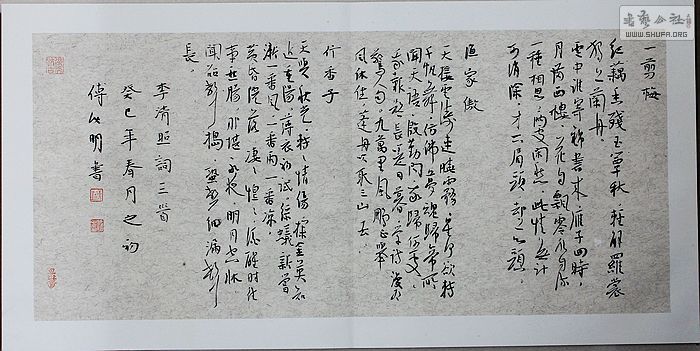 一剪梅
紅藕香殘玉簟秋，輕解羅裳
獨上蘭舟。
雲中誰寄錦書來，雁字回時，
月滿西樓。花自飄零水自流
一種相思，兩處閒愁。此情無計
可消除，才下眉頭，却上心頭。
漁家傲
天接雲濤連曉霧，星河欲轉
千帆舞，仿佛夢魂歸帝所
聞天語，殷勤問我歸何處。
我報路長嗟日暮，學詩謾有
驚人句。九萬里風鵬正舉
風休住，蓬舟吹取三山去。
行香子
天與秋光，轉轉情傷，探金英知
近重陽。薄衣初試，綠蟻新嘗
漸一番風，一番雨，一番涼。
黃昏院落，凄凄惶惶，酒醒時往
事愁腸。那堪永夜，明月空牀。
聞砧聲搗，蛩聲細，漏聲
長。
李清照詞三首
癸巳年春月之初
傅 明書
WWW.SHUFA.ORG